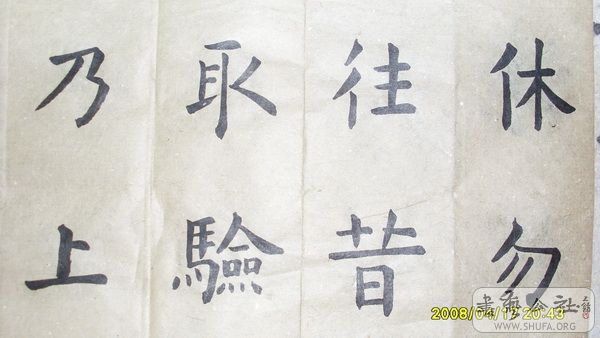 休勿
往昔
取驗
乃上
2008/04/13 20:43
書藝公社
WWW.SHUFA.ORG